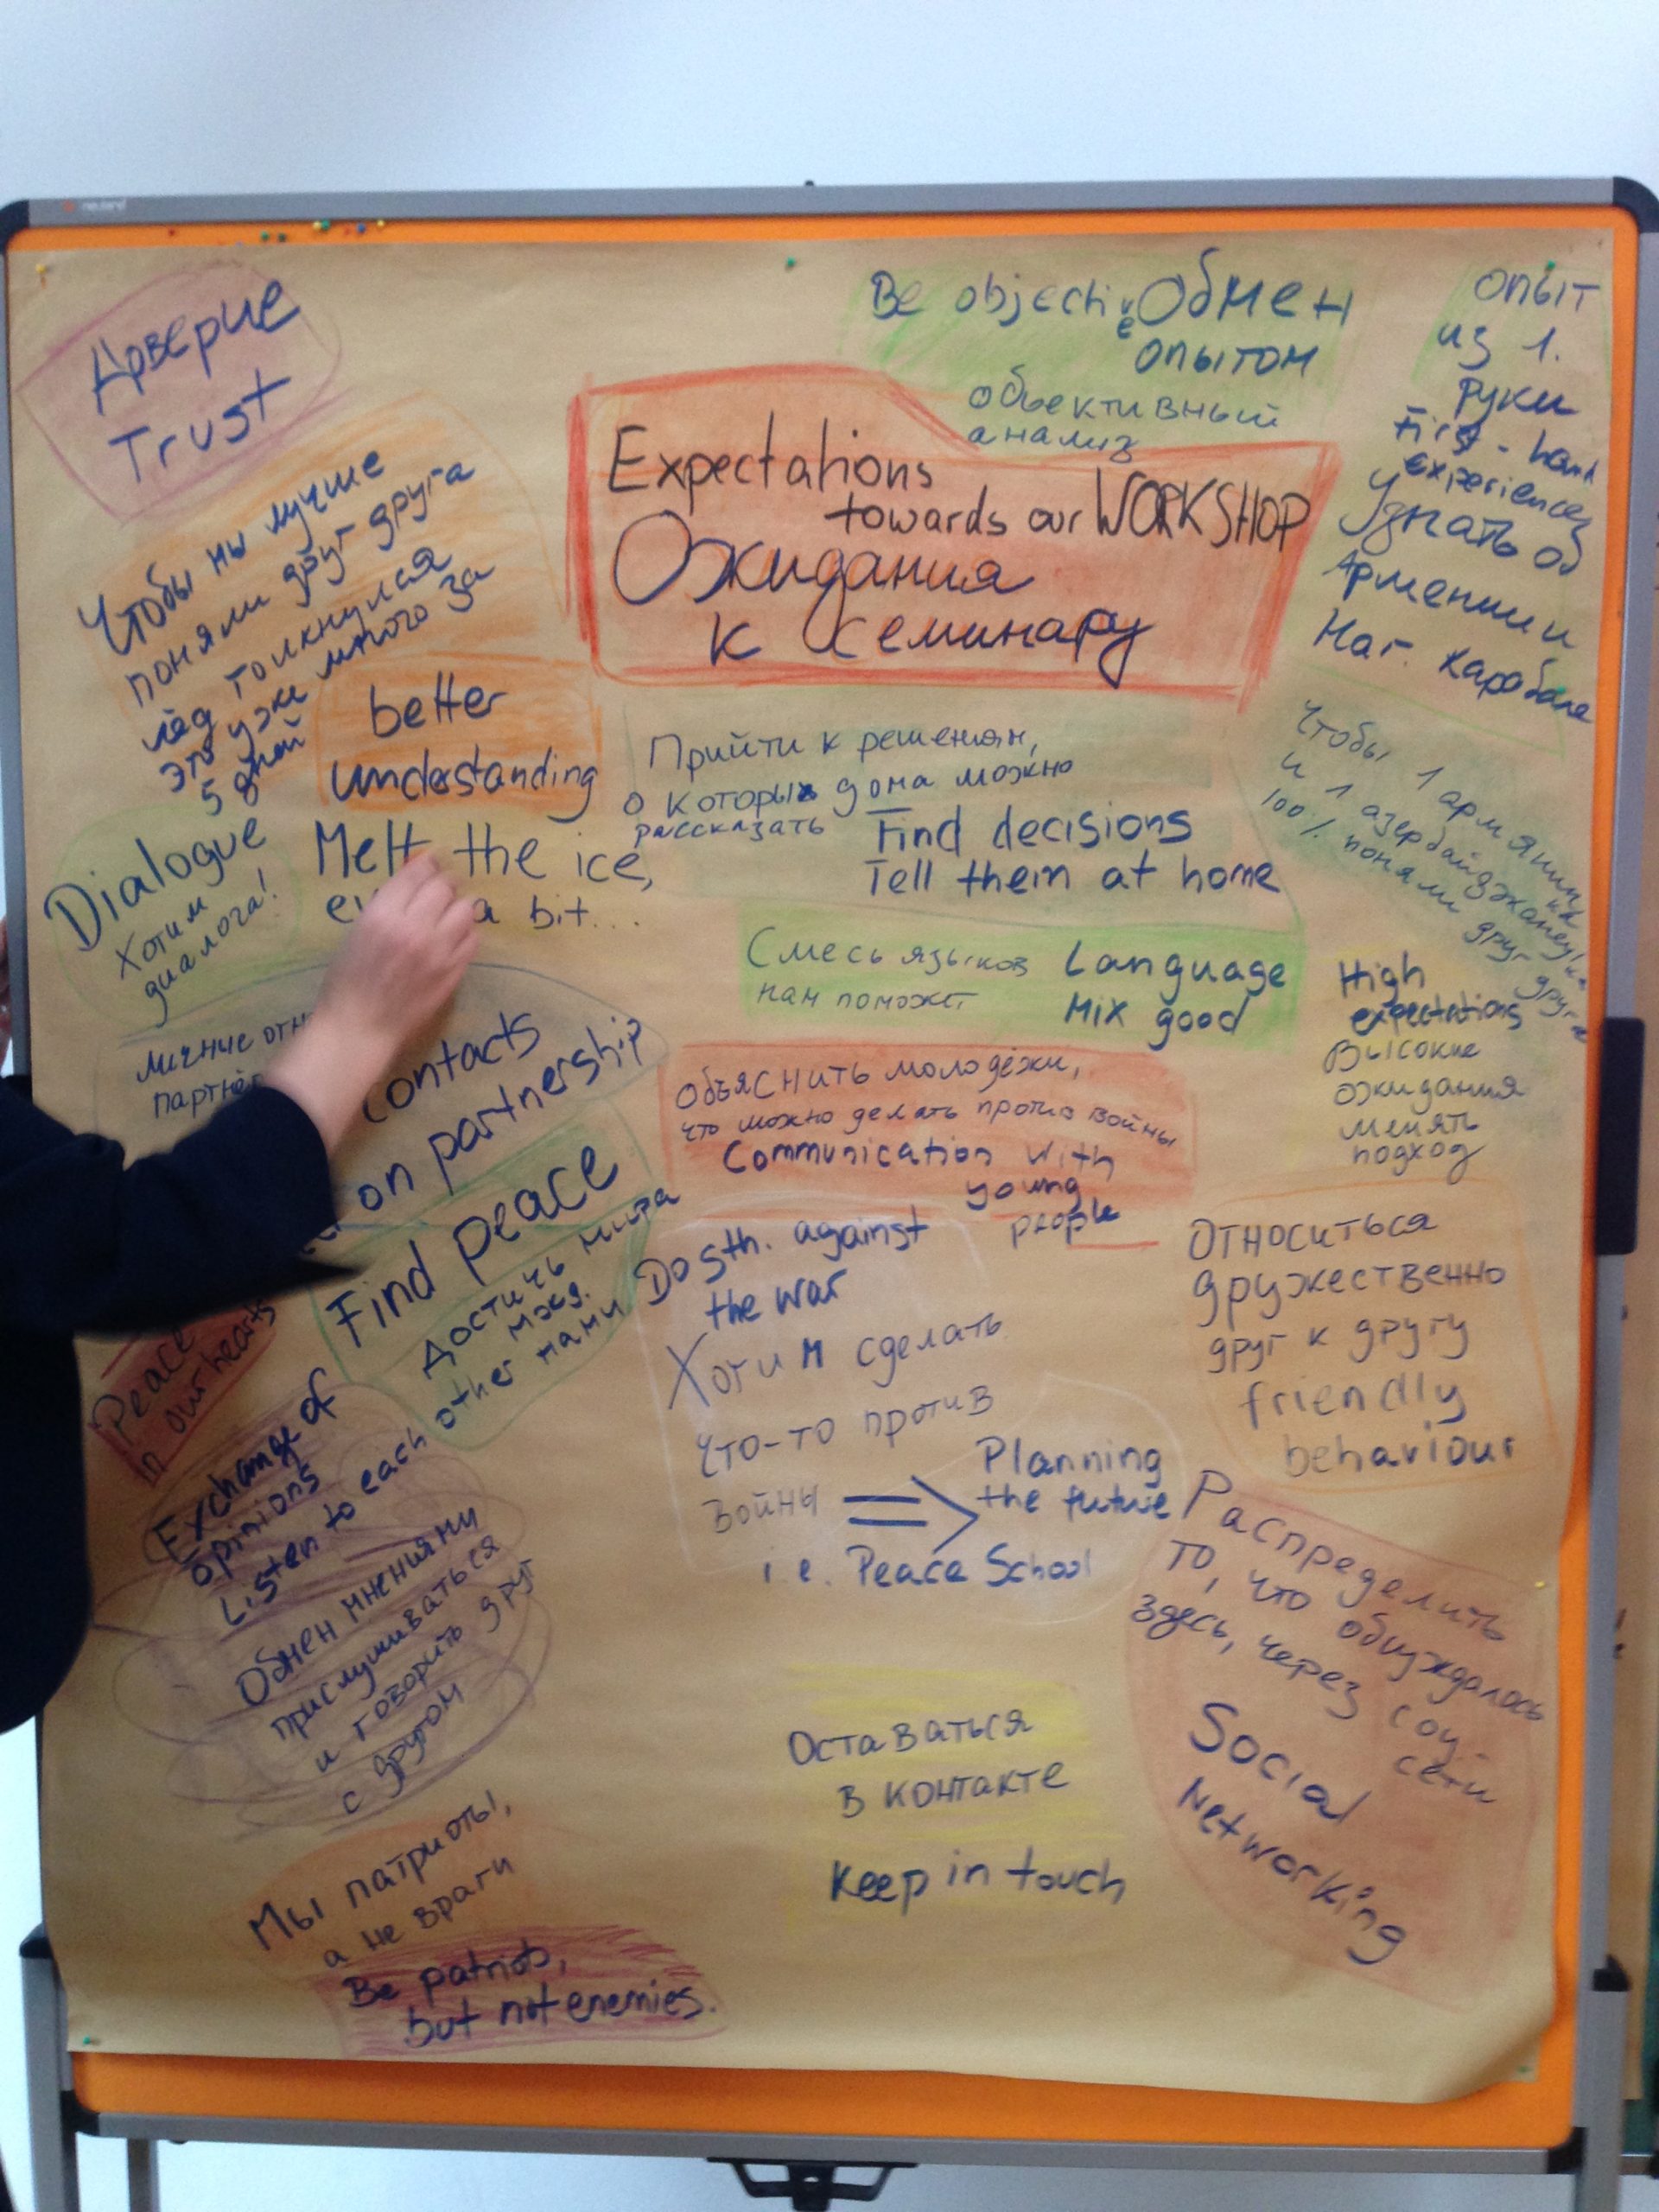 Доверие
Trust
Чтобы мы лучше
поняли друг друга
лёд толкнулся
это уже много за
5 дней
better
understanding
Dialogue
Хотим
диалога!
Melt the ice,
a bit...
Be objective
Обмен
опытом
объективный
анализ
Expectations
towards our WORKSHOP
Ожидания
к семинару
опыт
из 1.
руки
First-hand
experiences
Узнать об
Армении и
Наг. Карабахе
Прийти к решениям,
о которых дома можно
рассказать
Find decisions
Tell them at home
Чтобы 1 армянин
и 1 азербайджанец
100% поняли друг друга
Смесь языков
нам поможет
Language
Mix good
High
expectations
Высокие
ожидания
менять
подход
личные
contacts
on partnership
Объяснить молодёжи,
что можно делать против войны
Communication with
young
people
Find peace
Достичь мира
межд.
нами
Peace
in our hearts
Do sth. against
the war
Хотим сделать
что-то против
войны
=> Planning
the future
i.e. Peace School
Относиться
дружественно
друг к другу
friendly
behaviour
Exchange of
opinions
Listen to each other
Обмен мнениями
прислушиваться
и говорить друг
с другом
Распределить
то, что обсуждалось
здесь, через соц.
сети
Social
Networking
Оставаться
в контакте
Keep in touch
Мы патриоты,
а не враги
Be patriots,
but not enemies.